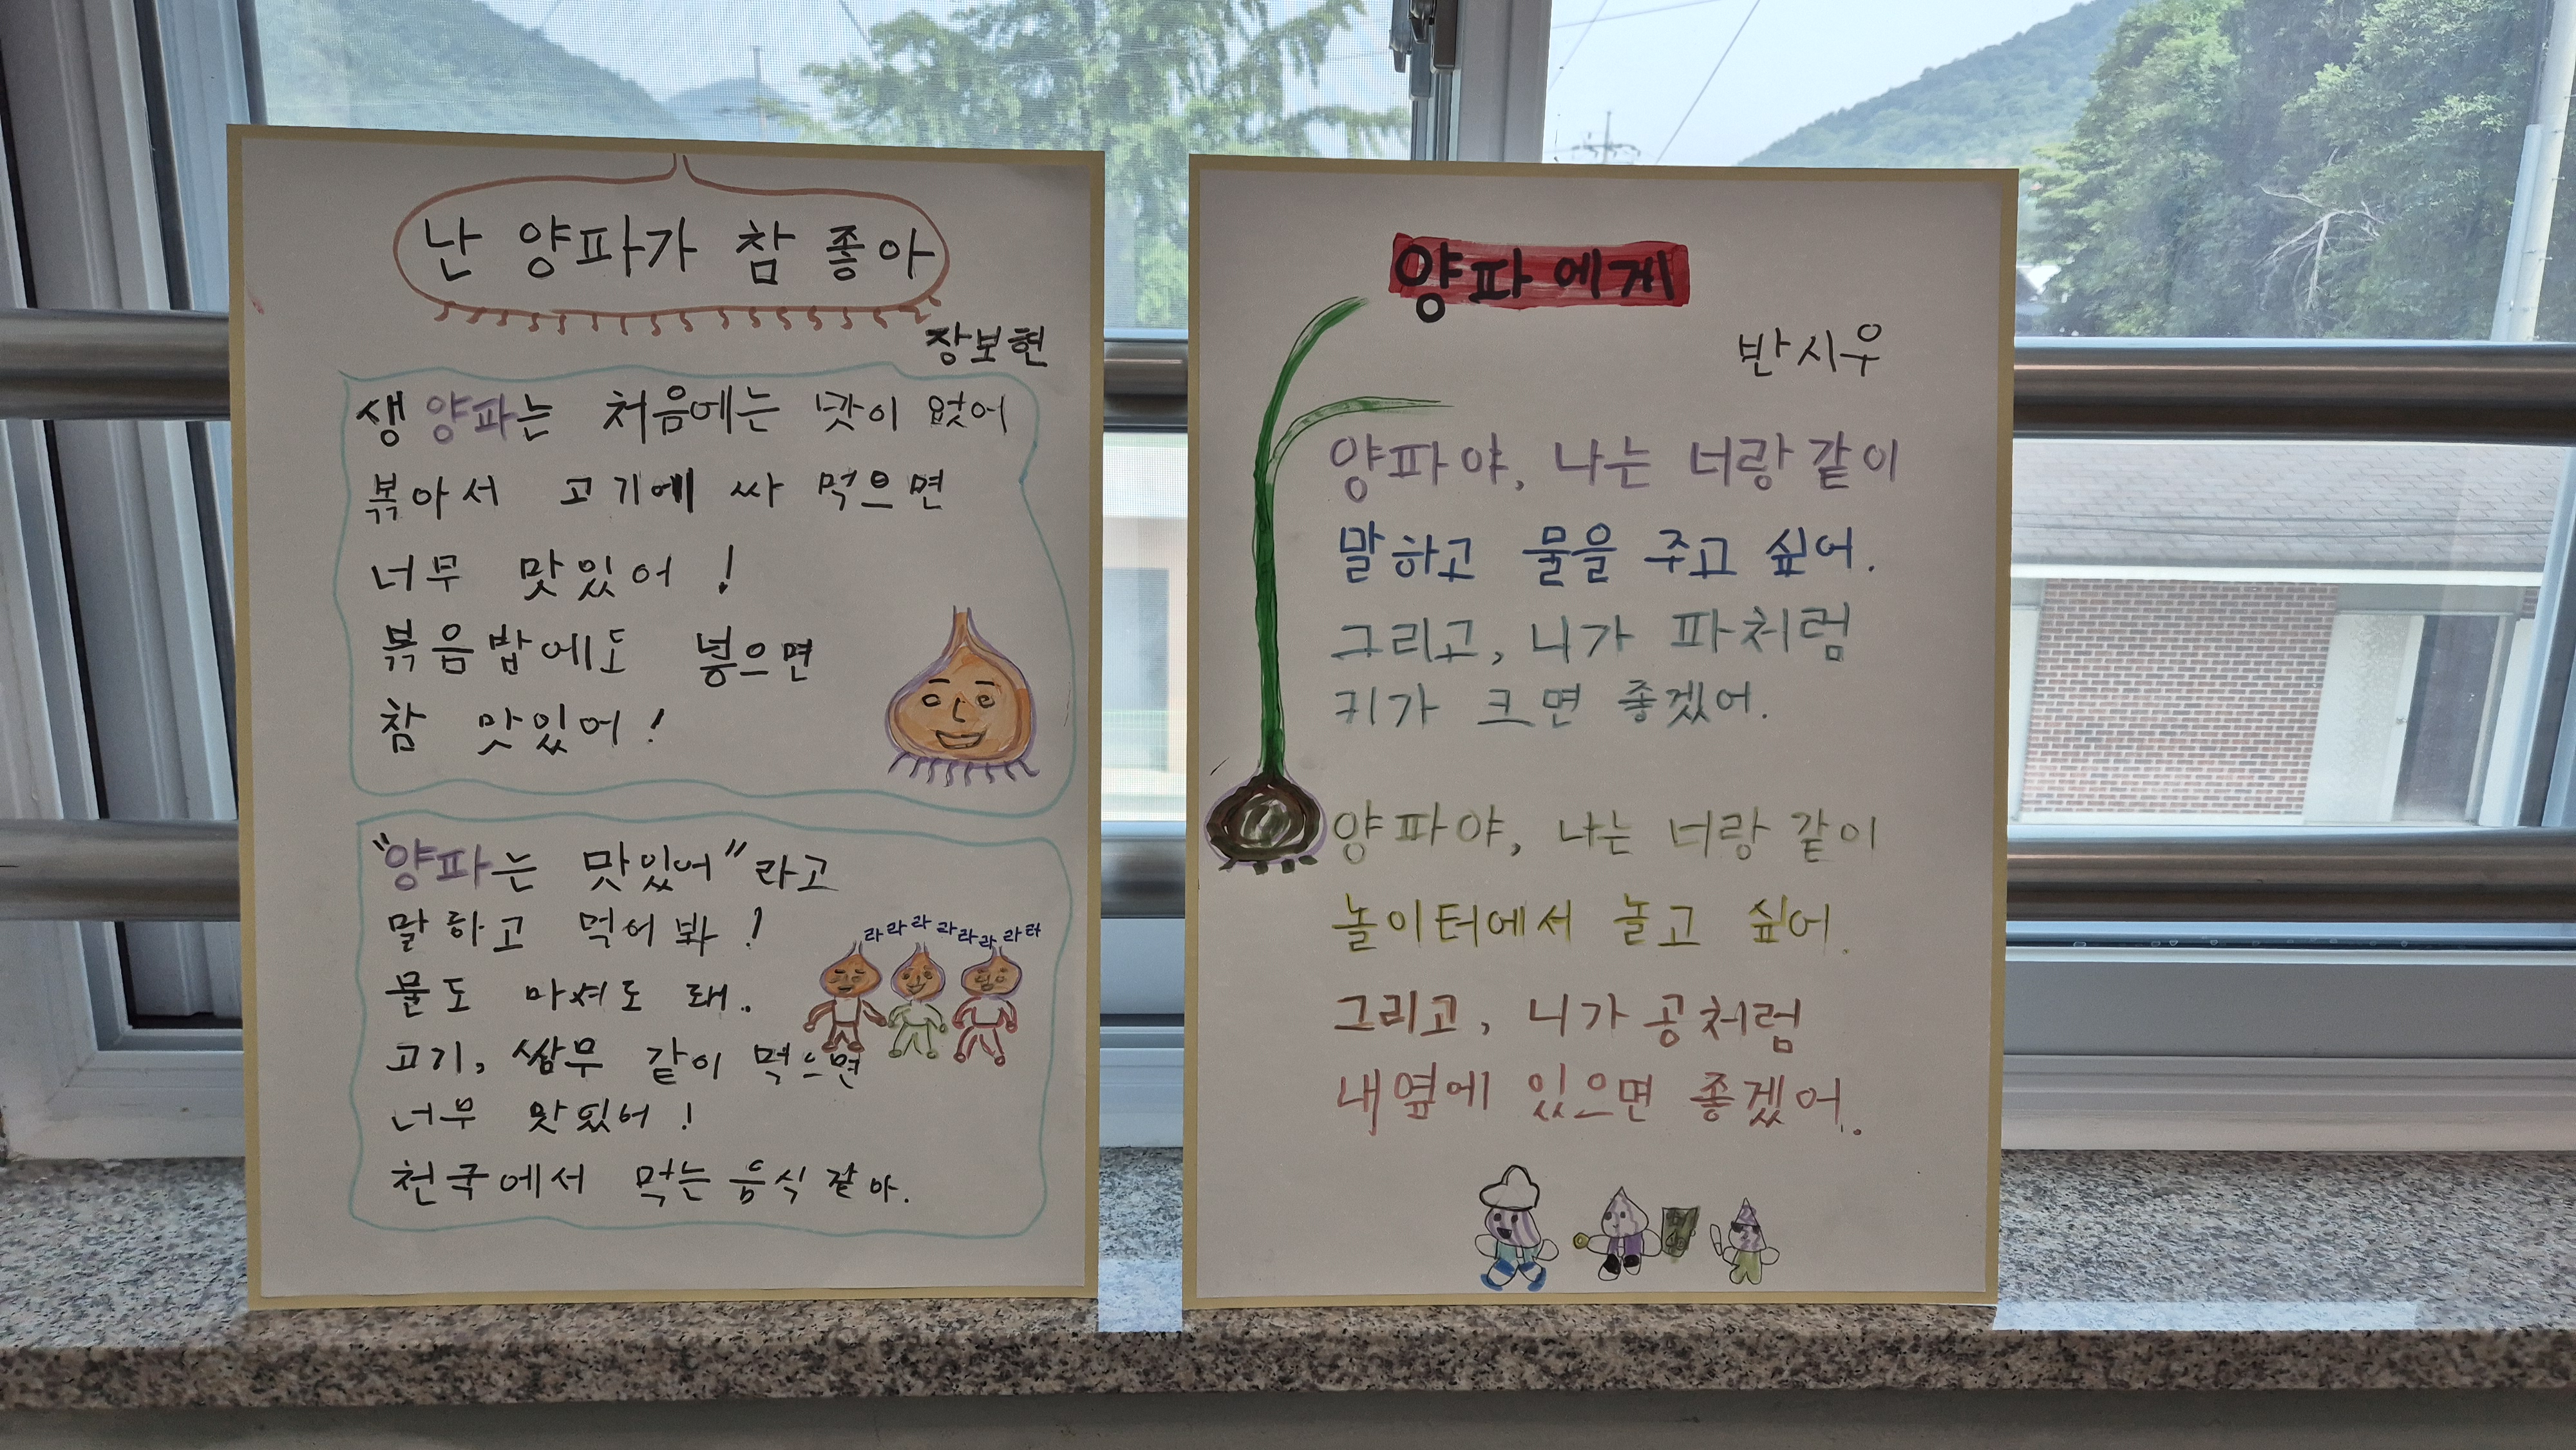 난 양파가 참 좋아
장보현
생 양파는 처음에는 맛이 없어
볶아서 고기에 싸 먹으면
너무 맛있어!
볶음밥에도 넣으면
참 맛있어!
"양파는 맛있어"라고
말하고 먹어 봐!
물도 마셔도 돼.
고기, 쌈무 같이 먹으면
너무 맛있어!
천국에서 먹는 음식 같아.
라라라라라라라라
양파에게
반시우
양파야, 나는 너랑 같이
말하고 물을 주고 싶어.
그리고, 니가 파처럼
키가 크면 좋겠어.
양파야, 나는 너랑 같이
놀이터에서 놀고 싶어.
그리고, 니가 공처럼
내옆에 있으면 좋겠어.